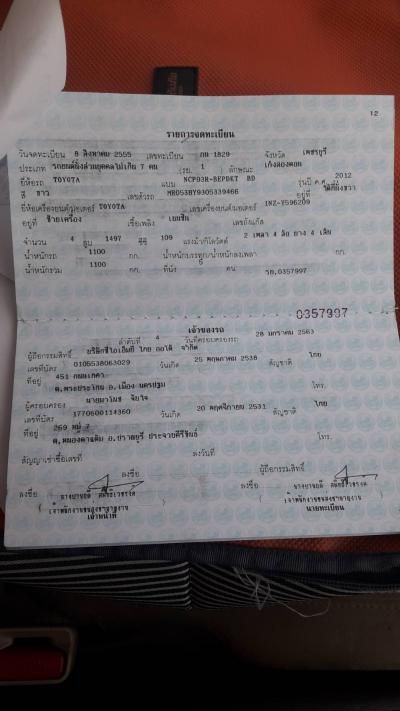 12
รายการจดทะเบียน
วันจดทะเบียน 8 สิงหาคม 2555 เลขทะเบียน กบ 1829 จังหวัด เพชรบุรี
ประเภท รถยนต์นั่งส่วนบุคคลไม่เกิน 7 คน (รย. 1 ลักษณะ เก๋งสองตอน
ยี่ห้อรถ TOYOTA แบบ NCP93R-BEPDKT BD รุ่นปี ค.ศ. 2012
สี ขาว เลขตัวรถ MR053HY9305339466 อยู่ที่
ยี่ห้อเครื่องยนต์/มอเตอร์ TOYOTA เลขเครื่องยนต์/มอเตอร์ 1NZ-Y596209
อยู่ที่ ซ้ายเครื่อง เชื้อเพลิง เบนซิน เลขถังแก๊ส
จำนวน 4 สูบ 1497 ซีซี 109 แรงม้า/กิโลวัตต์ 2 เพลา 4 ล้อ ยาง 4 เส้น
น้ำหนักรถ 1100 กก. น้ำหนักบรรทุก/น้ำหนักลงเพลา กก.
น้ำหนักรวม 1100 กก. ที่นั่ง 5 คน รย.0357997
0357997
เจ้าของรถ
ลำดับที่ 4 วันที่ครอบครองรถ 28 มกราคม 2563
ผู้ถือกรรมสิทธิ์ บริษัทซีไอเอ็มบี ไทย ออโต้ จำกัด
เลขที่บัตร 0105538063029 วันเกิด 25 พฤษภาคม 2538 สัญชาติ ไทย
ที่อยู่ 451
ต.พระประโทน อ.เมือง นครปฐม โทร.
ผู้ครอบครอง
เลขที่บัตร 3770600114360 วันเกิด 20 พฤศจิกายน 2531 สัญชาติ ไทย
ที่อยู่ 269 หมู่ 7
ต.หนองตาแต้ม อ.ปราณบุรี ประจวบคีรีขันธ์ โทร.
สัญญาเช่าซื้อเลขที่ ลงวันที่
ลงชื่อ ผู้ถือกรรมสิทธิ์
ลงชื่อ ลงชื่อ
เจ้าพนักงานขนส่งชำนาญงาน เจ้าพนักงานขนส่งชำนาญงาน
เจ้าหน้าที่ นายทะเบียน